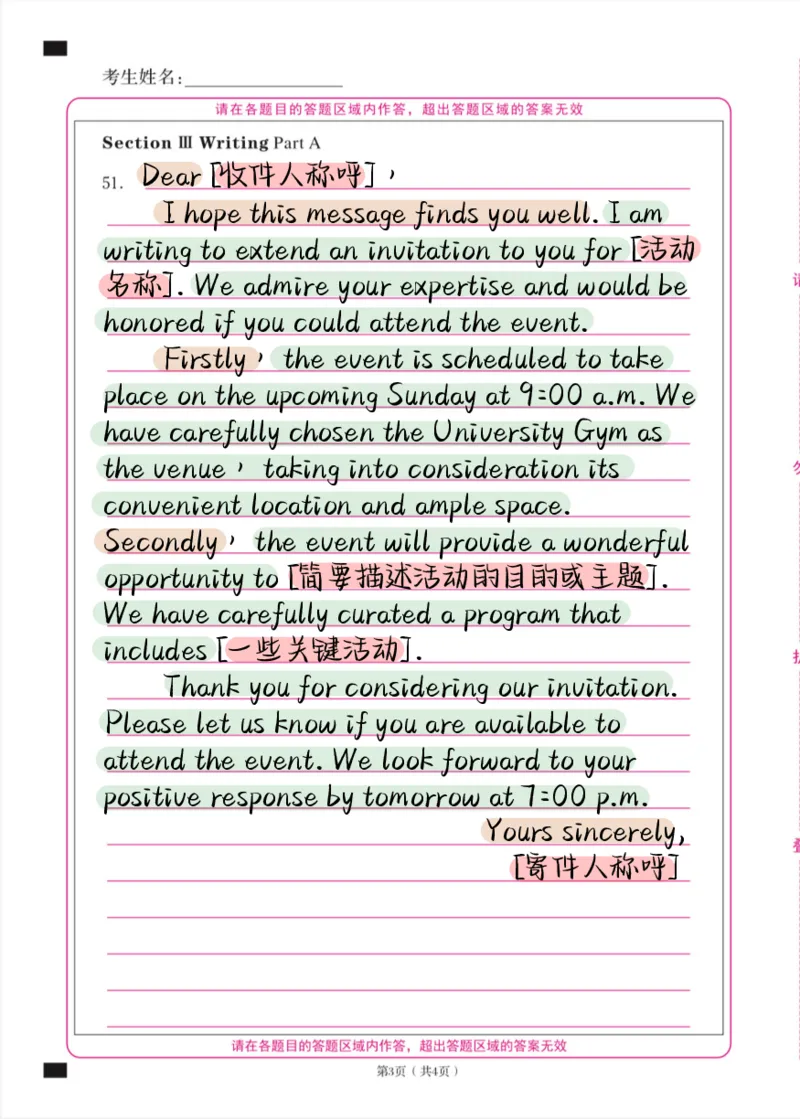 考生姓名:
请在各题目的答题区域内作答，超出答题区域的答案无效
Section Ⅲ Writing Part A
51. Dear [收件人称呼],
I hope this message finds you well. I am
writing to extend an invitation to you for [活动
名称]. We admire your expertise and would be
honored if you could attend the event.
Firstly, the event is scheduled to take
place on the upcoming Sunday at 9:00 a.m. We
have carefully chosen the University Gym as
the venue, taking into consideration its
convenient location and ample space.
Secondly, the event will provide a wonderful
opportunity to [简要描述活动的目的或主题].
We have carefully curated a program that
includes [一些关键活动].
Thank you for considering our invitation.
Please let us know if you are available to
attend the event. We look forward to your
positive response by tomorrow at 7:00 p.m.
Yours sincerely,
[寄件人称呼]
请在各题目的答题区域内作答，超出答题区域的答案无效
第3页（共4页）